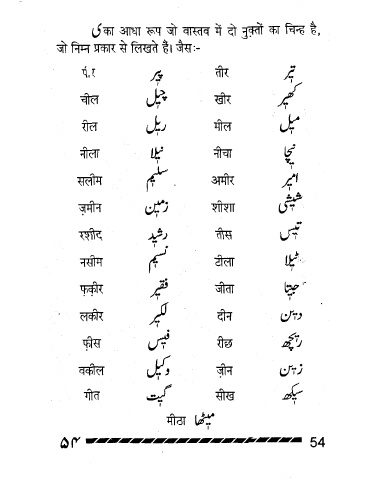 ی का आधा रूप जो वास्तव में दो नुक़्तों का चिन्ह है,
जो निम्न प्रकार से लिखते हैं। जैसः-
پیر तीर تیر
चील چیل खीर کھیر
रील ریل मील میل
नीला نیلا नीचा نیچا
सलीम سلیم अमीर امیر
ज़मीन زمین शीशा شیشی
रशीद رشید तीस تیس
नसीम نسیم टीला ٹیلا
फ़क़ीर فقیر जीता جیتا
लकीर لکیر दीन دین
फ़ीस فیس रीछ ریچھ
वकील وکیل ज़ीन زین
गीत گیت सीख سیکھ
मीठा میٹھا
۵۴ 54